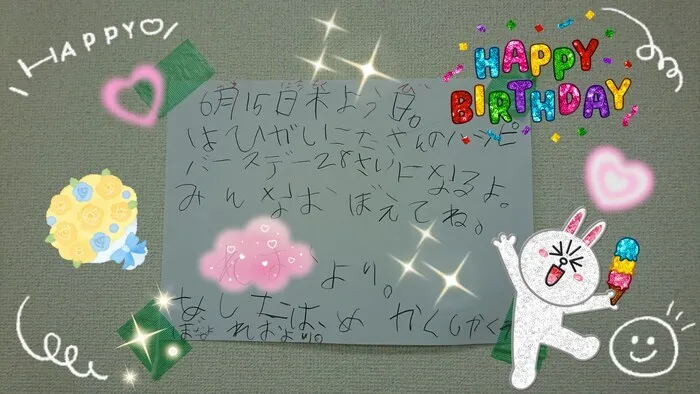 HAPPY
HAPPY
BIRTHDAY
6月15日木よう日。
はひがいにたさんのハッピ
バースデー28さいになるよ。
みんなおぼえてね。
より。
あしたは、め かくしかく